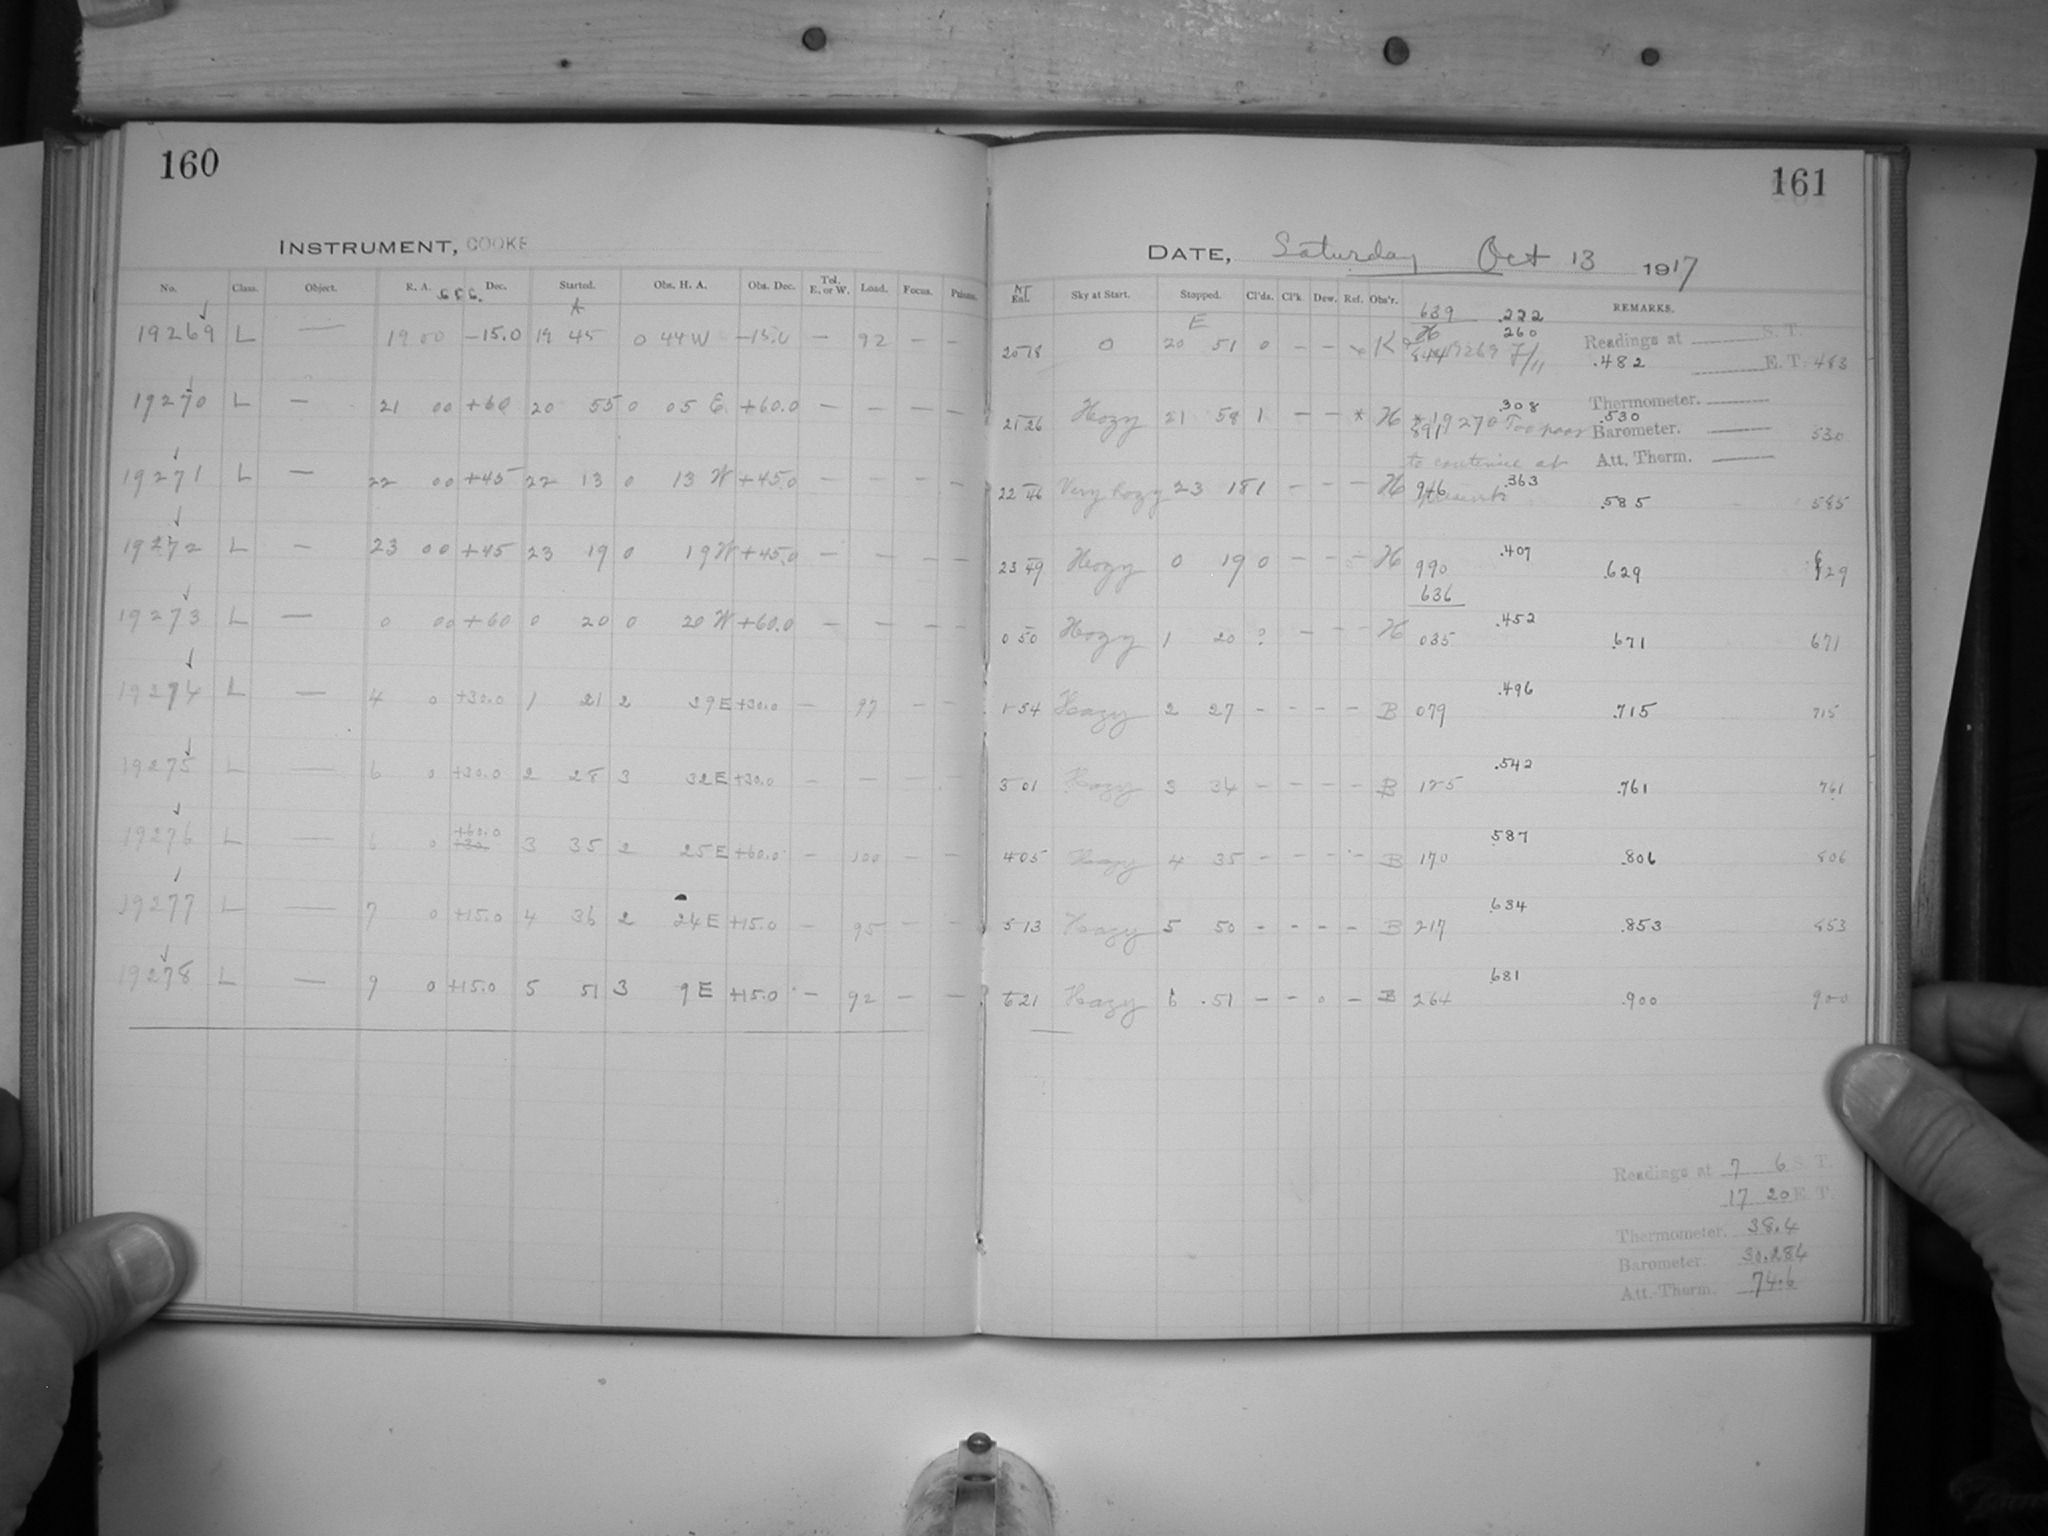 160
INSTRUMENT, COOKE
No. Class. Object. R. A. Dec. Started. Obs. H. A. Obs. Dec. Tel. E. or W. Load. Focus.
A
19269 L — 19 00 -15.0 19 45 0 44 W -15.0 — 92 — —
19270 L — 21 00 +60 20 55 0 05 E +60.0 — — — —
19271 L — 22 00 +45 22 13 0 13 W +45.0 — — — —
19272 L — 23 00 +45 23 19 0 19 W +45.0 — — — —
19273 L — 0 00 +60 0 20 0 20 W +60.0 — — — —
19274 L — 4 0 +30.0 1 21 2 39 E +30.0 — 97 — —
19275 L — 6 0 +30.0 2 28 3 32 E +30.0 — — — —
19276 L — 6 0 +60.0 +30 3 35 2 25 E +60.0 — 100 — —
19277 L — 7 0 +15.0 4 36 2 24 E +15.0 — 95 — —
19278 L — 9 0 +15.0 5 51 3 9 E +15.0 — 92 — —
161
DATE, Saturday Oct 13 1917
Sky at Start. Stopped. Cl'ds. Cl'k Dew. Ref. Obs'r. REMARKS.
E
639 .222
20 18 0 20 51 0 — — K 844 19269 F/11 .260 .482 483
Readings at S. T.
E. T.
Thermometer.
Barometer.
Att. Therm.
21 26 Hazy 21 58 1 — — * H 891 * 19270 Too poor .308 .530 530
to continue at
22 46 Very hazy 23 18 1 — — — H 946 .363 .585 585
23 49 Hazy 0 19 0 — — — H 990 .407 .629 629
636
0 50 Hazy 1 20 ? — — — H 035 .452 .671 671
1 54 Hazy 2 27 — — — — B 079 .496 .715 715
3 01 Hazy 3 34 — — — — B 125 .542 .761 761
4 05 Hazy 4 35 — — — — B 170 .587 .806 806
5 13 Hazy 5 50 — — — — B 217 .634 .853 853
6 21 Hazy 6 51 — — 0 — B 264 .681 .900 900
Readings at 7 6 S. T.
17 20 E. T.
Thermometer. 38.4
Barometer. 30.284
Att. Therm. 74.6